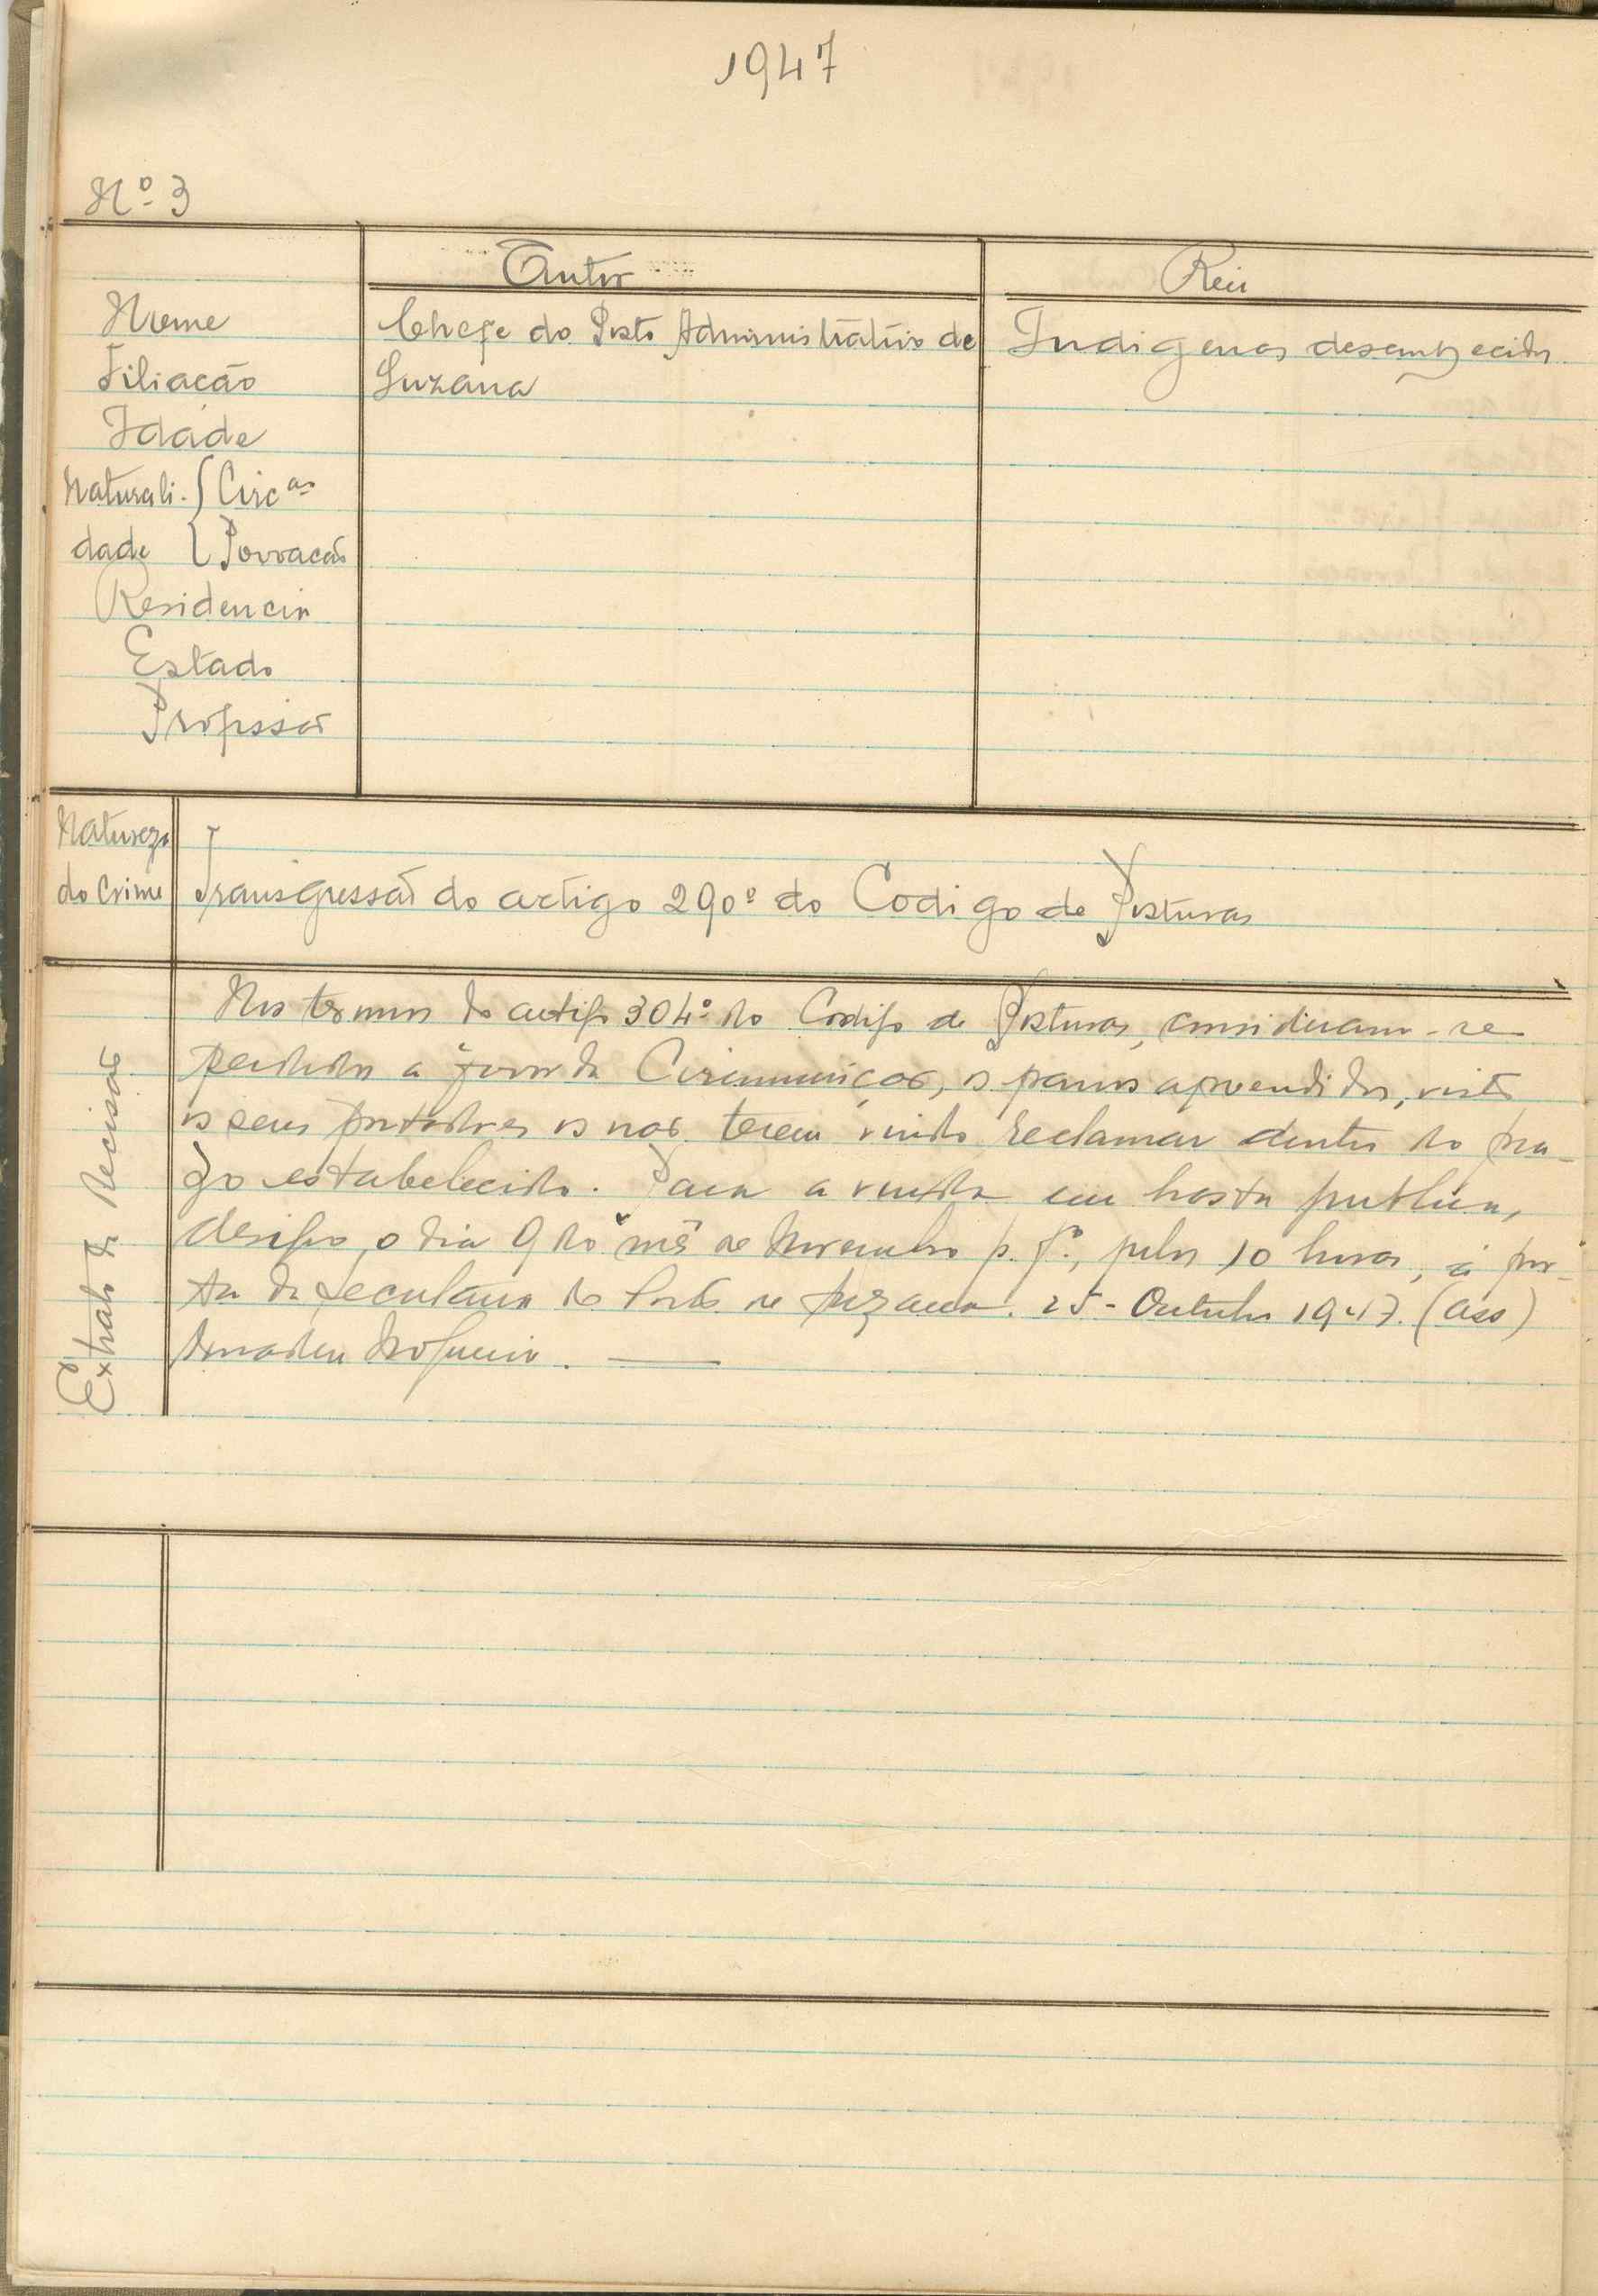 1947
Nº 3
Autor Reu
Nome Chefe do Posto Administrativo de Indigenas desconhecidos
Filiação Suzana
Idade
Naturali- Circªº
dade Povoação
Residencia
Estado
Profissão
Natureza
do Crime Transgressão do artigo 290º do Codigo de Posturas
Extrato da Decisão
Nos termos do artigo 304º do Codigo de Posturas, consideram-se
perdidos a favor da Circunscrição, os panos apreendidos, visto
os seus portadores os não terem vindo reclamar dentro do pra-
zo estabelecido. Para a venda em hasta publica,
designo, o dia 9 do mês de Novembro p. fº, pelas 10 horas, á por-
ta da Secretaria do Posto de Suzana. 25-Outubro 1947. (ass)
Amadeu Nogueira.